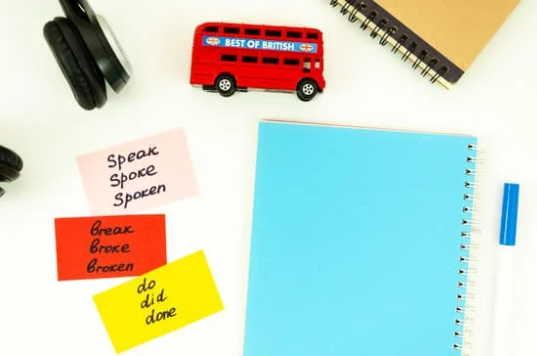 BEST OF BRITISH
Speak
Spoke
Spoken
break
broke
broken
do
did
done